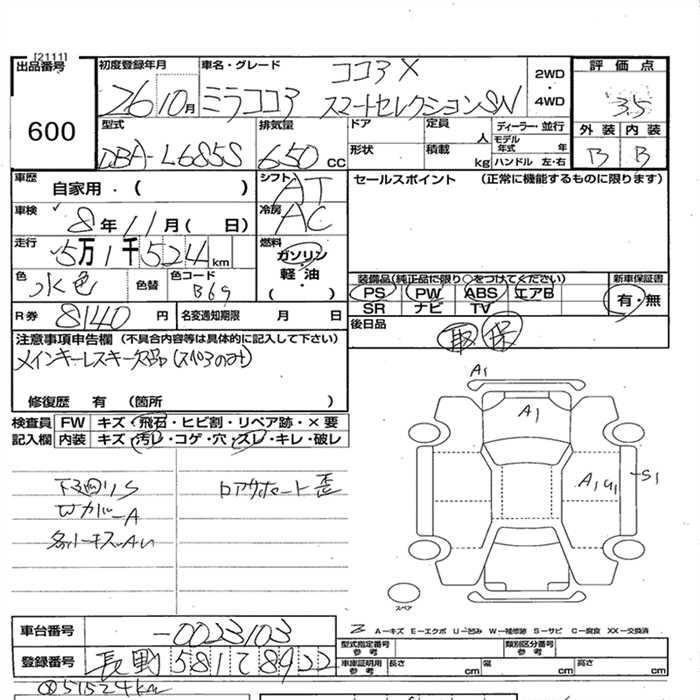 [2111]
出品番号 初度登録年月 車名・グレード 評価点
600
26 10月 ミラココア ココアX スマートセレクションSN
2WD・4WD
3.5
型式 排気量 ドア 定員 人 ディーラー・並行 外装 内装
DBA-L685S 650 CC
形状 積載 kg モデル年式 年 ハンドル 左・右
B B
車歴 自家用・( ) シフト AT セールスポイント (正常に機能するものに限ります)
車検 8年11月( 日) 冷房 AC
走行 5万1千524km 燃料 ガソリン・軽油・( )
色 水色 色替 色コード B69
装備品(純正品に限り○をつけてください) 新車保証書
PS PW ABS エアB 有・無
SR ナビ TV
R券 8140円 名変通知期限 月 日
後日品 取 保
注意事項申告欄(不具合内容等は具体的に記入して下さい)
メインキーレスキー欠品(スペアのみ)
修復歴 有(箇所 )
検査員 FW キズ・飛石・ヒビ割・リペア跡・×要
記入欄 内装 キズ・汚レ・コゲ・穴・スレ・キレ・破レ
下廻りS
Wカバー A
ロアサポート歪
A1
A1
A1 U1
S1
スペア
A−キズ E−エクボ U−凹み W−補修跡 S−サビ C−腐食 XX−交換済
車台番号 -0023103
型式指定番号 参考 類別区分番号 参考
登録番号 長野 581
車庫証明用 参考 長さ cm 幅 cm 高さ cm
51524km